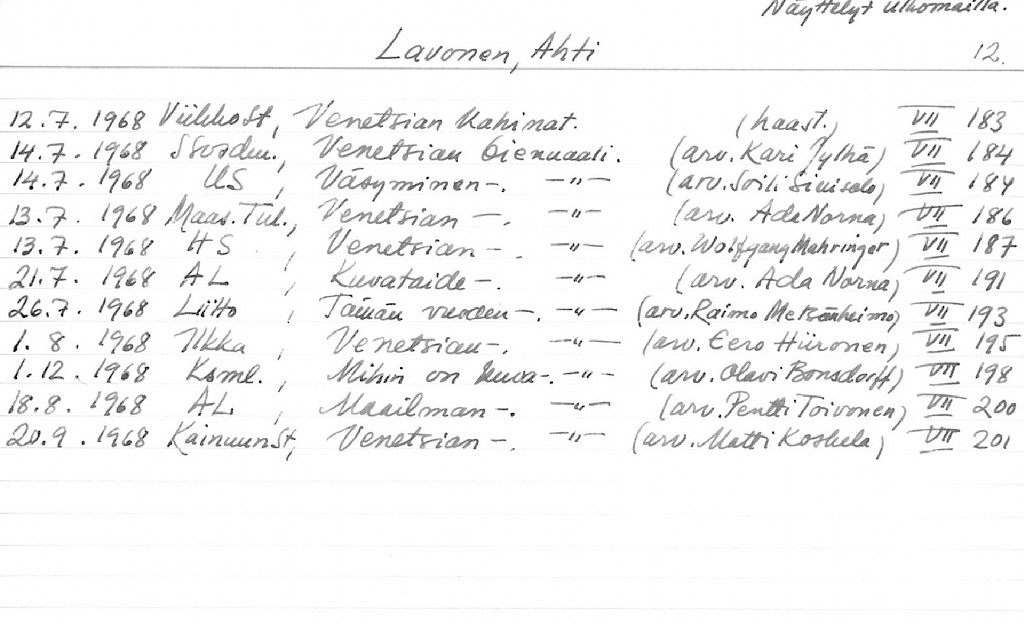 Näyttelyt ulkomailla.
Lavonen, Ahti 12.
12.7. 1968 ViikkoSt, Venetsian Kahinat. (haast.) VII 183
14.7. 1968 Ssosdem., Venetsian biennaali. (arv. Kari Jylhä) VII 184
14.7. 1968 US, Väsyminen-. -"- (arv. Soili Sinisalo) VII 184
13.7. 1968 Maas.Tul., Venetsian -. -"- (arv. Ada Norna) VII 186
13.7. 1968 HS, Venetsian -. -"- (arv. Wolfgang Mahringer) VII 187
21.7. 1968 AL, Kuvataide-. -"- (arv. Ada Norna) VII 191
26.7. 1968 Liitto, Tämän vuoden-. -"- (arv. Raimo Metsänheimo) VII 193
1. 8. 1968 Ilkka, Venetsian-. -"- (arv. Eero Hiironen) VII 195
1.12. 1968 Ksml., Mihin on kuva-. -"- (arv. Olavi Bonsdorff) VII 198
18.8. 1968 AL, Maailman-. -"- (arv. Pentti Toivonen) VII 200
20.9. 1968 KainuunSt, Venetsian-. -"- (arv. Matti Koskela) VII 201